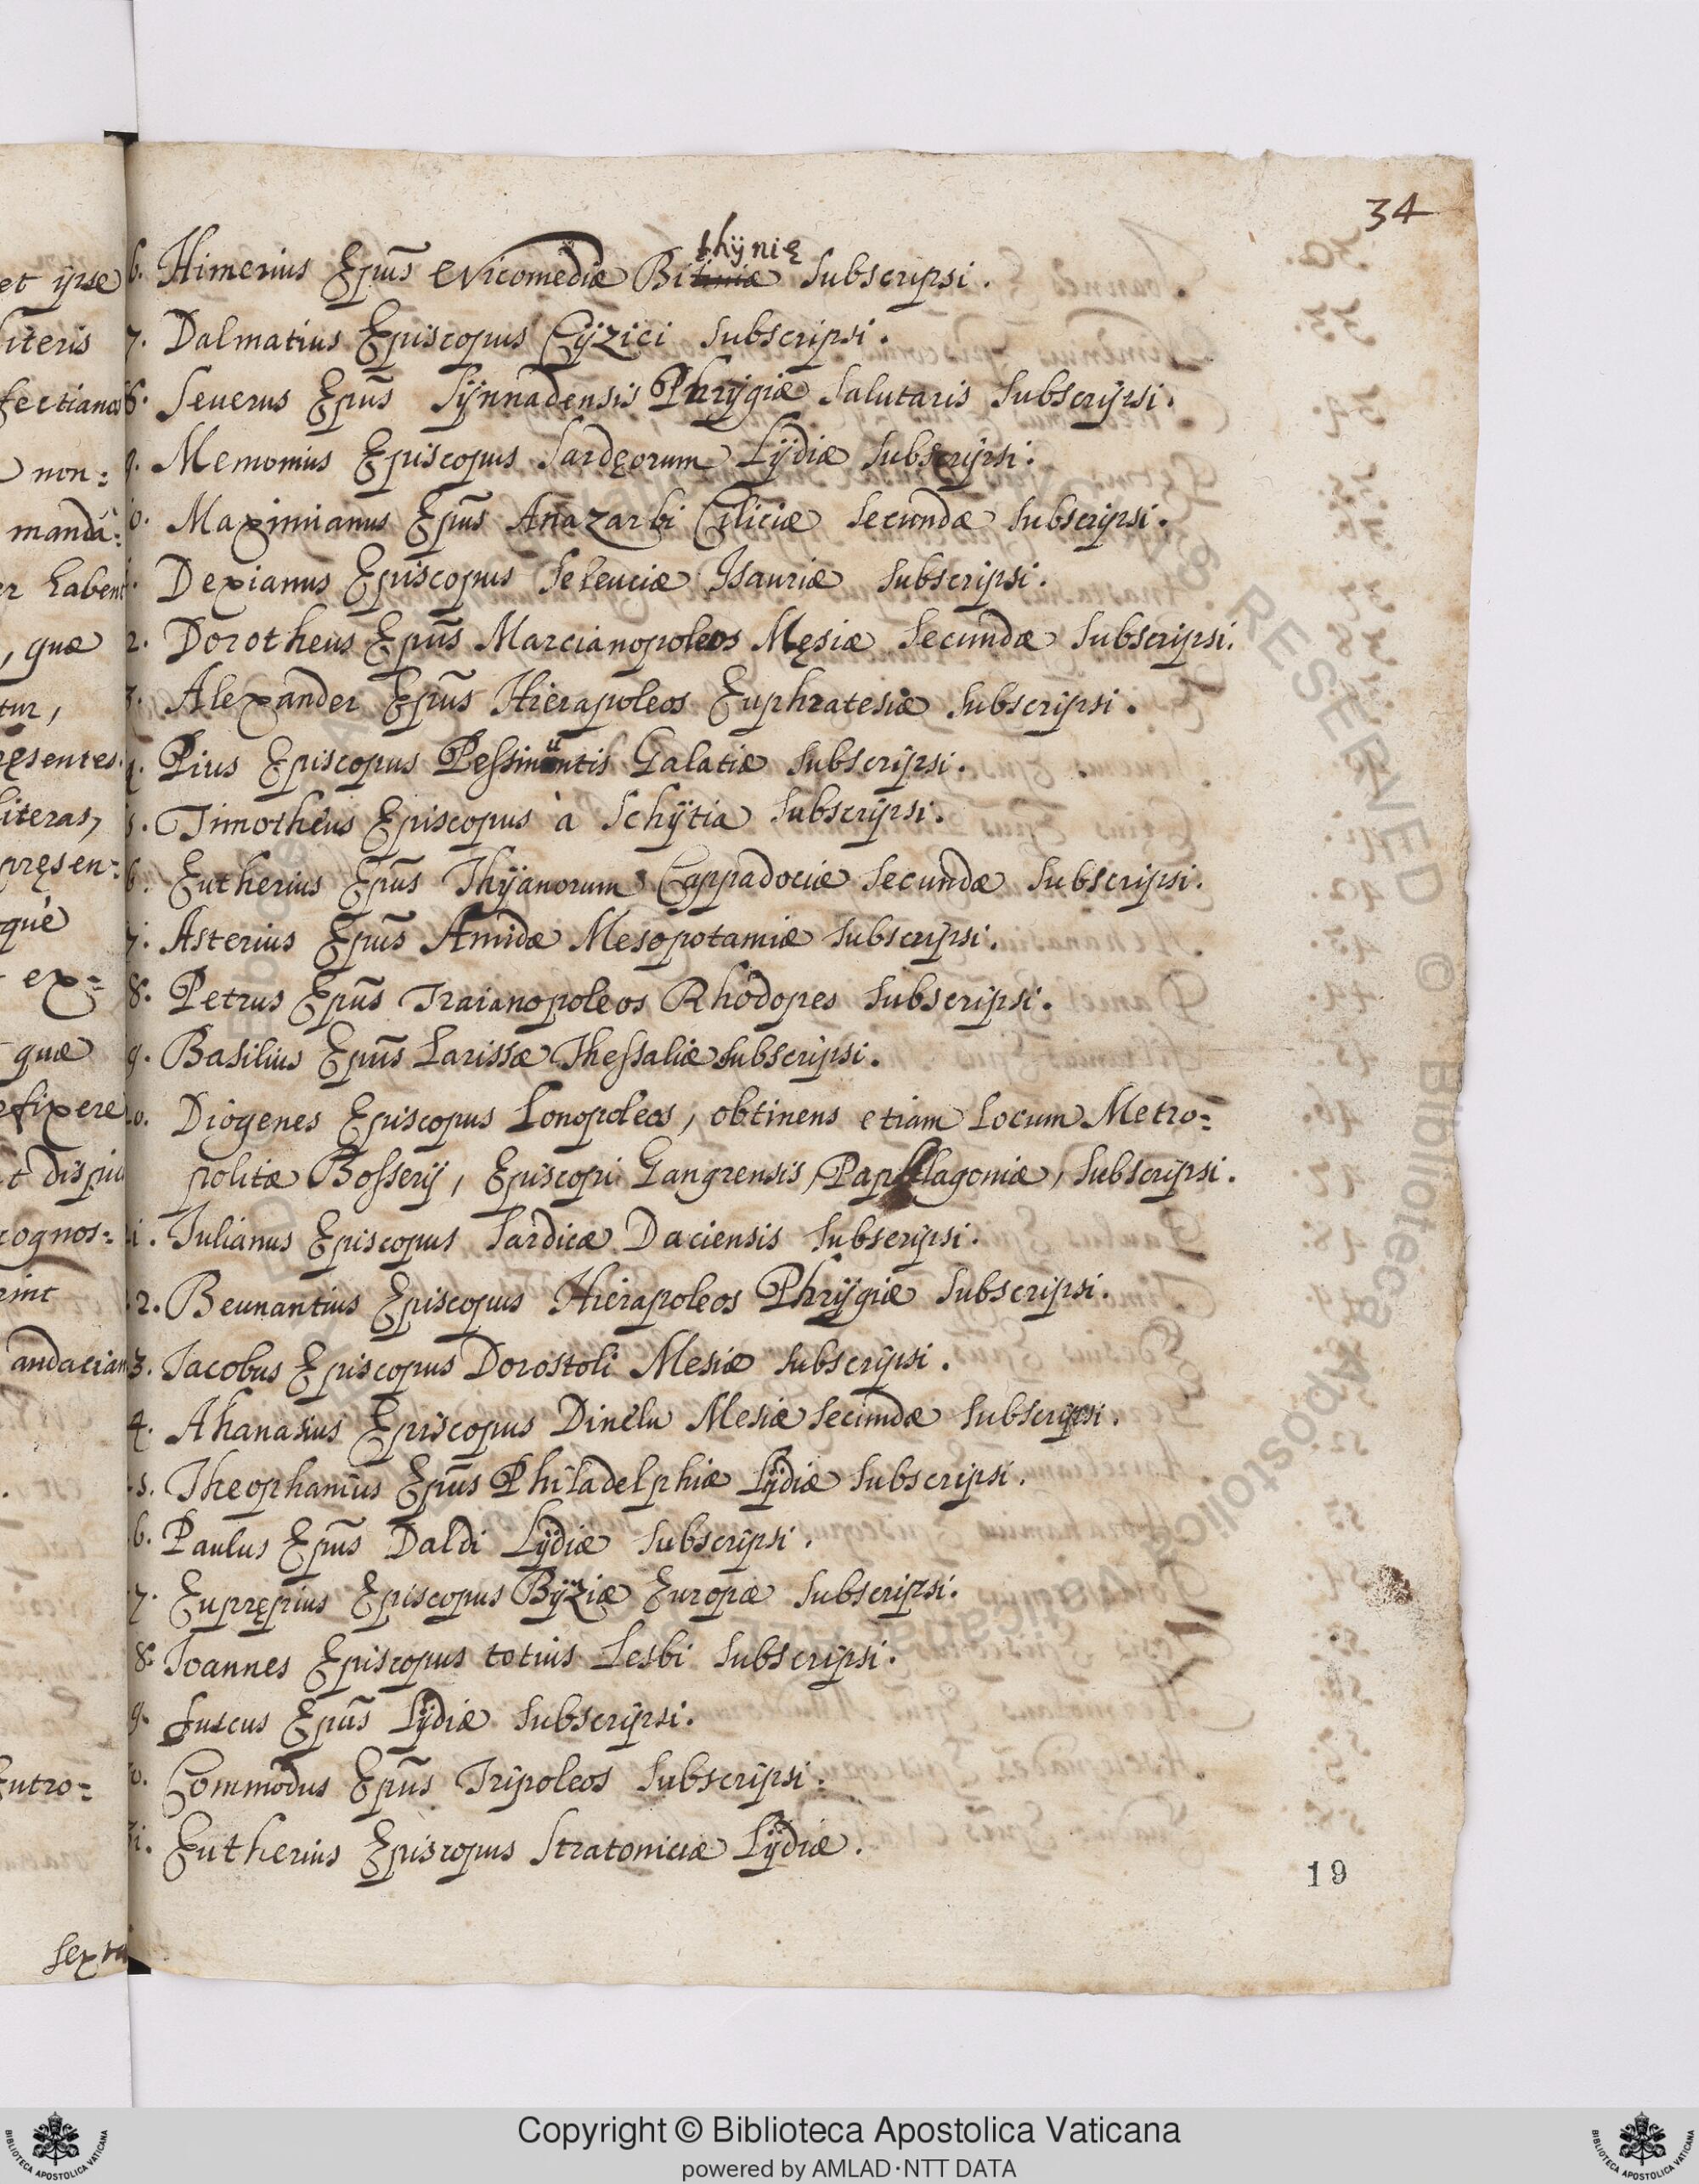 34
6. Himerius Epũs Nicomediæ Bitiniæ thÿnię subscripsi.
7. Dalmatius Episcopus Cÿzici subscripsi.
8. Seuerus Epũs Sÿnnadensis Phrÿgiæ Salutaris subscripsi.
9. Memomius Episcopus Sardęorum Lÿdiæ subscripsi.
0. Maximianus Epũs Anazarbi Ciliciæ secundæ subscripsi.
Dexianus Episcopus Seleuciæ Isauriæ subscripsi.
2. Dorotheus Epũs Marcianopoleos Męsiæ secundæ subscripsi.
3. Alexander Epũs Hierapoleos Euphratesiæ subscripsi.
4. Pius Episcopus Pessinuntis Galatiæ subscripsi.
5. Timotheus Episcopus à Schÿtia subscripsi.
6. Eutherius Epũs Thÿanorum Cappadociæ secundæ subscripsi.
7. Asterius Epũs Amidæ Mesopotamiæ subscripsi.
8. Petrus Epũs Traianopoleos Rhodopes subscripsi.
9. Basilius Epũs Larissæ Thessaliæ subscripsi.
20. Diogenes Episcopus Lonopoleos, obtinens etiam locum Metro=
politæ Bosserij, Episcopi Gangrensis, Paphlagoniæ, subscripsi.
21. Iulianus Episcopus Sardicæ Daciensis subscripsi.
22. Beunantius Episcopus Hierapoleos Phrÿgiæ subscripsi.
3. Iacobus Episcopus Dorostoli Mesiæ subscripsi.
4. Ahanasius Episcopus Dinelu Mesiæ secundæ subscripsi.
5. Theophanius Epũs Philadelphiæ Lÿdiæ subscripsi.
6. Paulus Epũs Daldi Lÿdiæ subscripsi.
7. Euprępius Episcopus Bÿziæ Europæ subscripsi.
8. Ioannes Episcopus totius Lesbi subscripsi.
9. Fuscus Epũs Lÿdiæ subscripsi.
30. Commodus Epũs Tripoleos subscripsi.
31. Eutherius Episcopus Stratoniciæ Lÿdiæ.
19
Copyright © Biblioteca Apostolica Vaticana
powered by AMLAD·NTT DATA